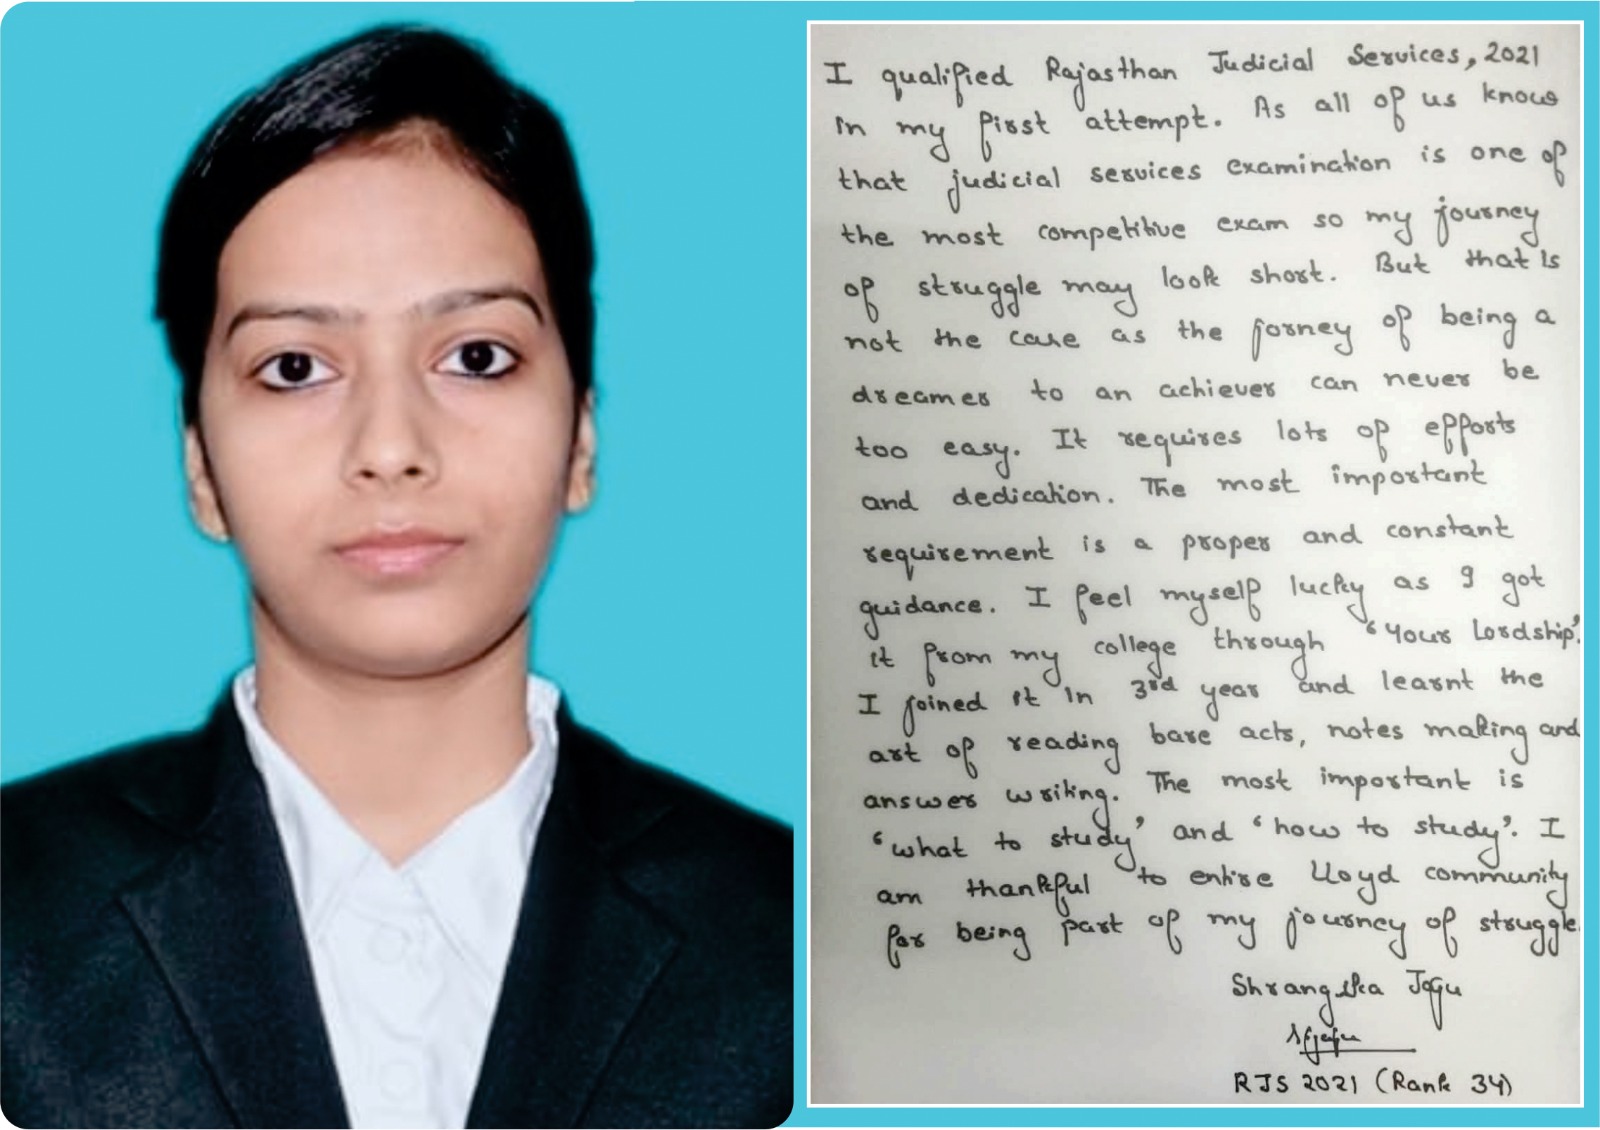 I qualified Rajasthan Judicial Services, 2021
in my first attempt. As all of us know
that judicial services examination is one of
the most competitive exam so my journey
of struggle may look short. But that is
not the case as the jorney of being a
dreamer to an achiever can never be
too easy. It requires lots of efforts
and dedication. The most important
requirement is a proper and constant
guidance. I feel myself lucky as I got
it from my college through 'Your Lordship'.
I joined it in 3rd year and learnt the
art of reading bare acts, notes making and
answer writing. The most important is
'what to study' and 'how to study'. I
am thankful to entire Lloyd community
for being part of my journey of struggle.
Shrangika Jagu
RJS 2021 (Rank 34)